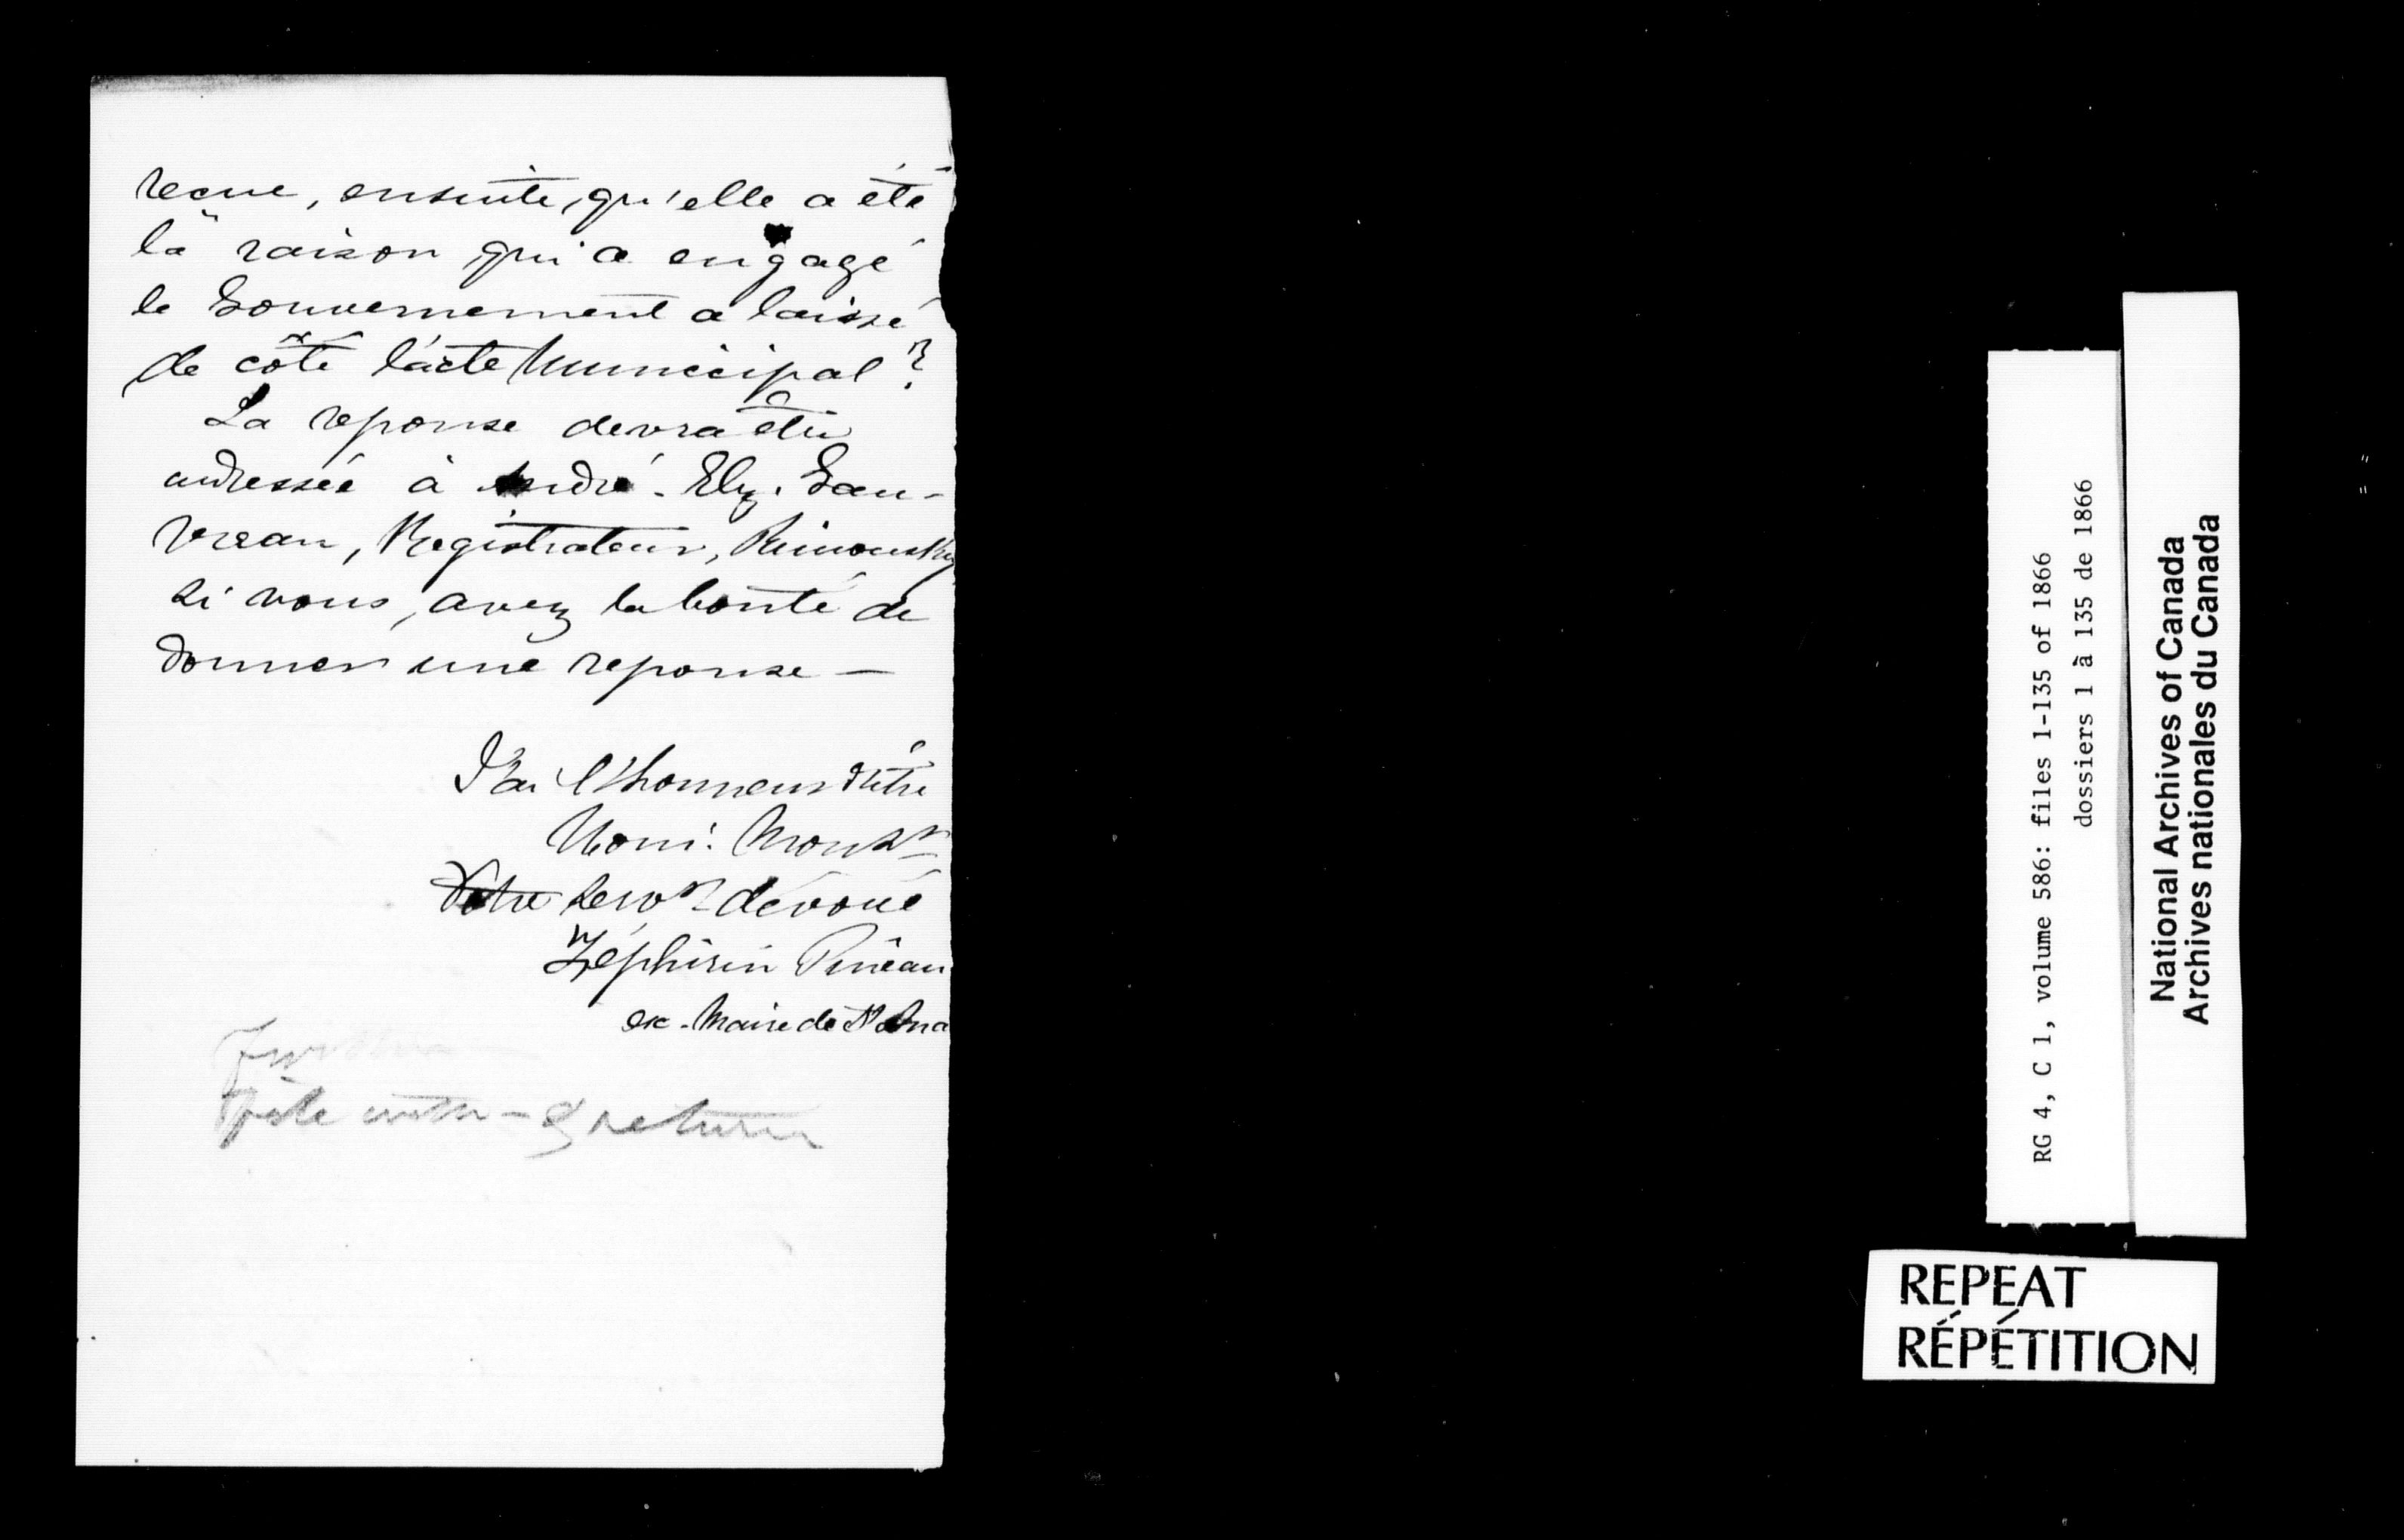 recue, ensuite, qu'elle a été
la raison qui a engagé
le Gouvernement a laissé
de côté l'acte Municipal?
La reponse devra être
adressée à André. Elz. Gau-
vreau, Registrateur, Rimouski
si vous avez la bonté de
donner une reponse —
J'ai l'honneur d'être
Mons.r
Votre Serv.r dévoué
Zéphirin Pineau
ex-Maire de
file with - & return
RG 4, C 1, volume 586: files 1-135 of 1866
dossiers 1 à 135 de 1866
National Archives of Canada
Archives nationales du Canada
REPEAT
RÉPÉTITION